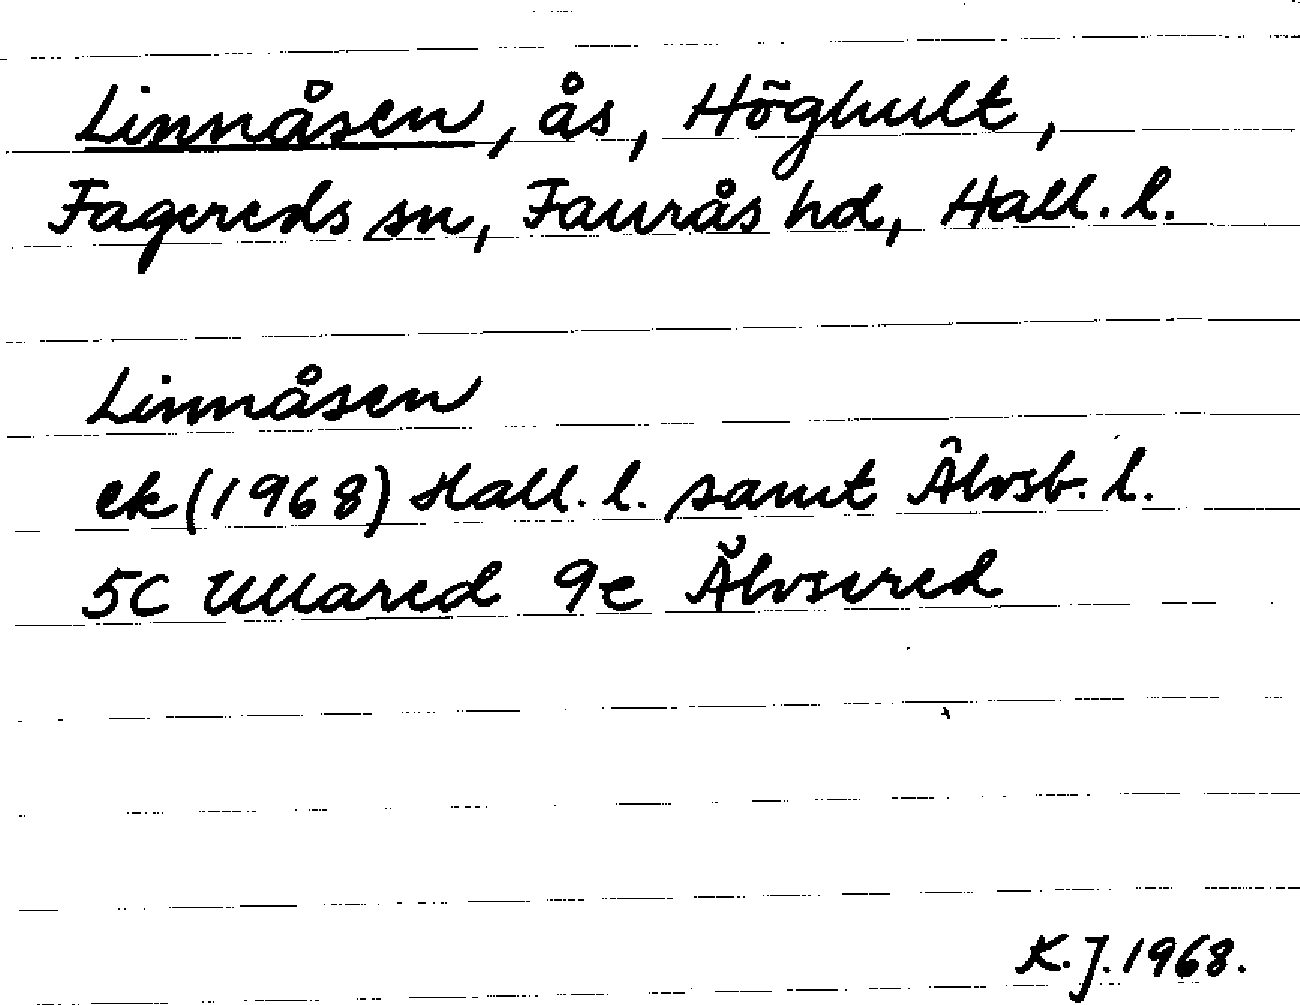 Linnåsen, ås, Höghult,
Fagereds sn, Faurås hd, Hall. l.
Linnåsen
ek (1968) Hall. l. samt Älvsb. l.
5C Ullared 9e Älvsered
K.J. 1968.